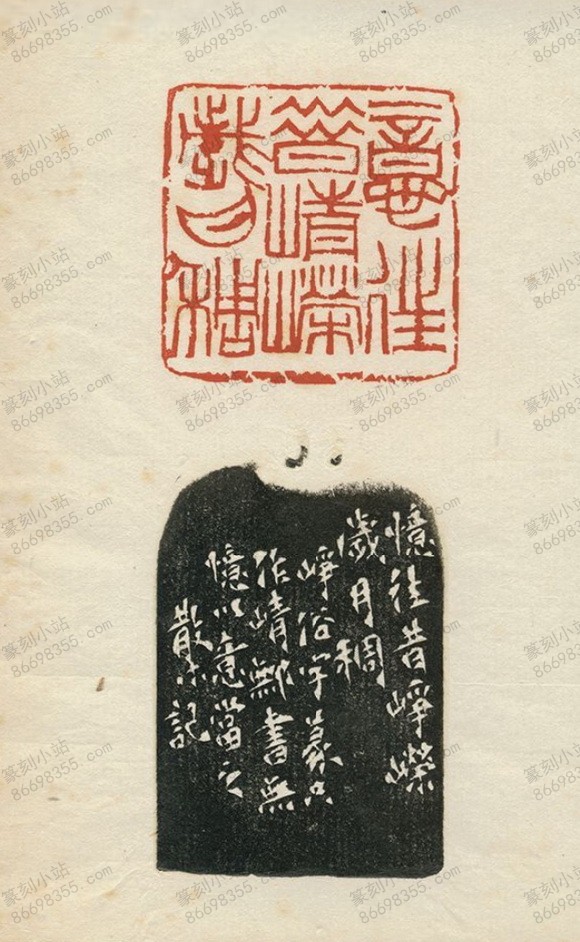 意往
昔崝嶸
歲月稠
憶往昔崢嶸
歲月稠
崢俗字篆只
作崝鄦書無
憶以意當之
散木記
篆刻小站
86698355.com